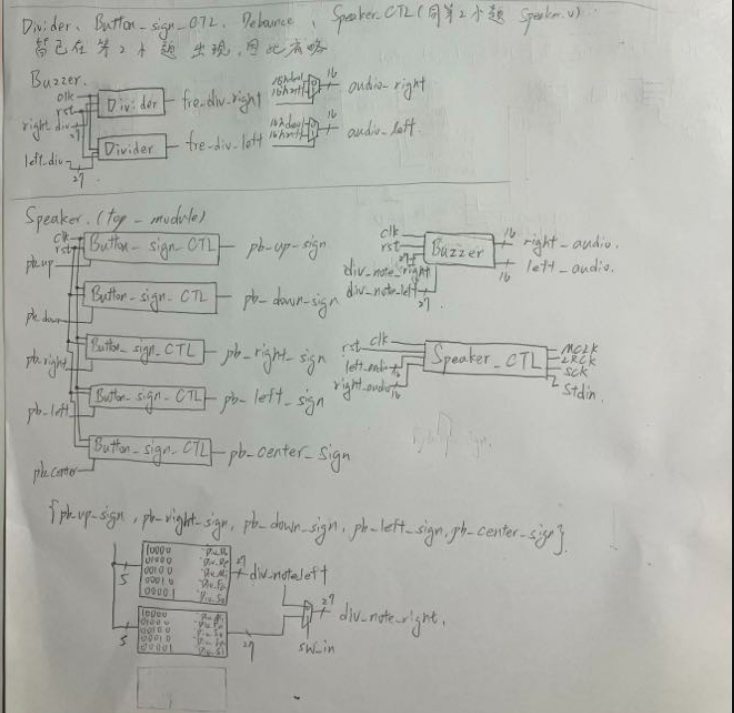 Divider、Button_sign_CTL、Debounce、Speaker_CTL(同第2小題 Speaker.v)
皆已在第2小題出現,因此省略
Buzzer.
clk
rst
right_div
27
Divider
fre_div_right
16
audio_right
left_div
27
Divider
fre_div_left
16
audio_left
Speaker.(top_module)
clk
rst
pb_up
Button_sign_CTL
pb_up_sign
pb_down
Button_sign_CTL
pb_down_sign
pb_right
Button_sign_CTL
pb_right_sign
pb_left
Button_sign_CTL
pb_left_sign
pb_center
Button_sign_CTL
pb_center_sign
clk
rst
27
div_note_right
div_note_left
27
Buzzer
16
right_audio.
left_audio.
16
rst clk
left_audio
right_audio
16
Speaker_CTL
MCLK
LRCK
SCK
Stdin.
{pb_up_sign, pb_right_sign, pb_down_sign, pb_left_sign, pb_center_sign}.
5
10000
01000
00100
00010
00001
27
div_note_left
5
10000
01000
00100
00010
00001
27
sw_in
27
div_note_right.